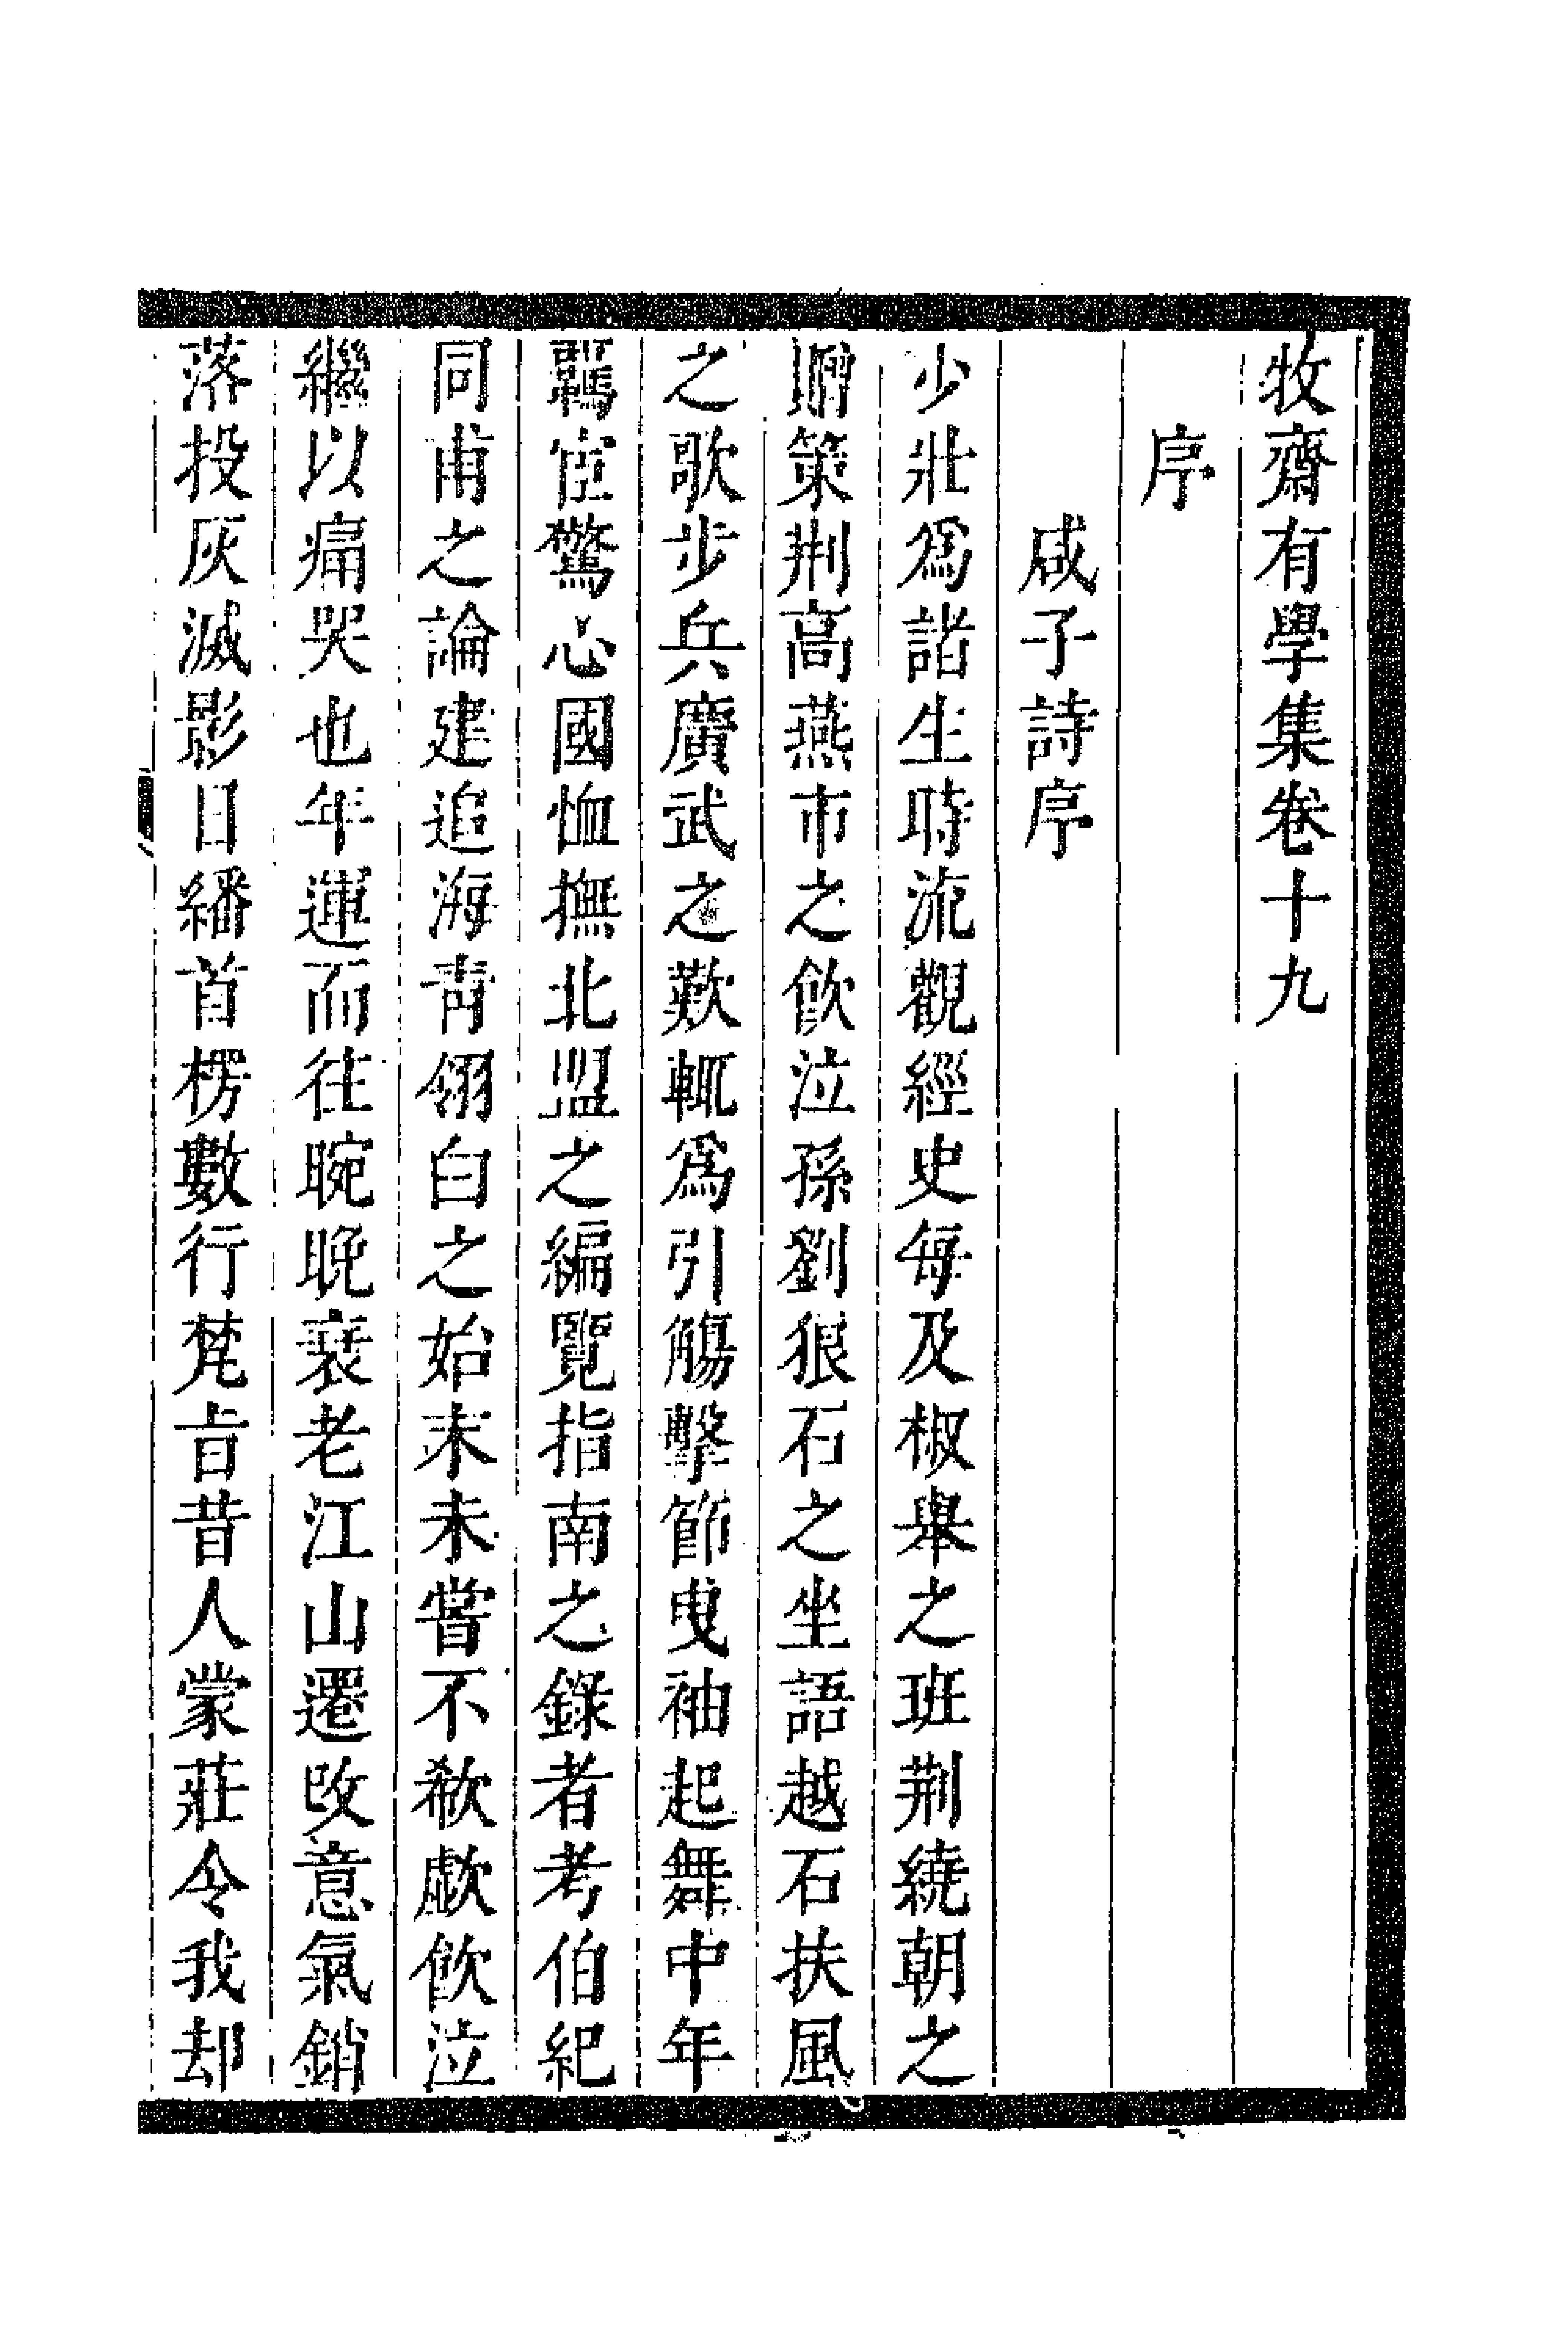 牧齋有學集卷十九
序
咸子詩序
少壯爲諸生時流觀經史每及椒舉之班荆繞朝之
贈策荆高燕市之飮泣孫劉狠石之坐語越石扶風
之歌步兵廣武之歎輒爲引觴擊節曳袖起舞中年
羈宦驚心國恤撫北盟之編覽指南之錄者考伯紀
同甫之論建追海靑翎白之始末未嘗不欷歔飮泣
繼以痛哭也年運而往晼晚衰老江山遷改意氣銷
落投灰滅影日繙首楞數行梵㫖昔人蒙莊令我却